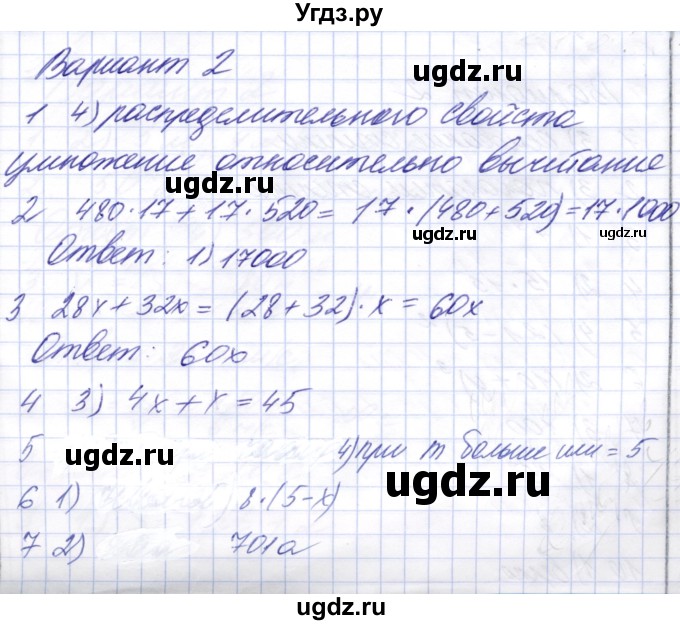 Угдз.ру
Вариант 2
1 4) распределительного свойста
умножение относительно вычитание
2 480·17+17·520= 17·(480+520)=17·1000
Ответ: 1) 17000
3 28x+32x=(28+32)·x=60x
Ответ: 60x
4 3) 4x+x=45
5 4) при m больше или = 5
6 1) 8·(5-x)
7 2) 701a
ugdz.ru
ugdz.ru
ugdz.ru
ugdz.ru
ugdz.ru
ugdz.ru
ugdz.ru
ugdz.ru
ugdz.ru
ugdz.ru